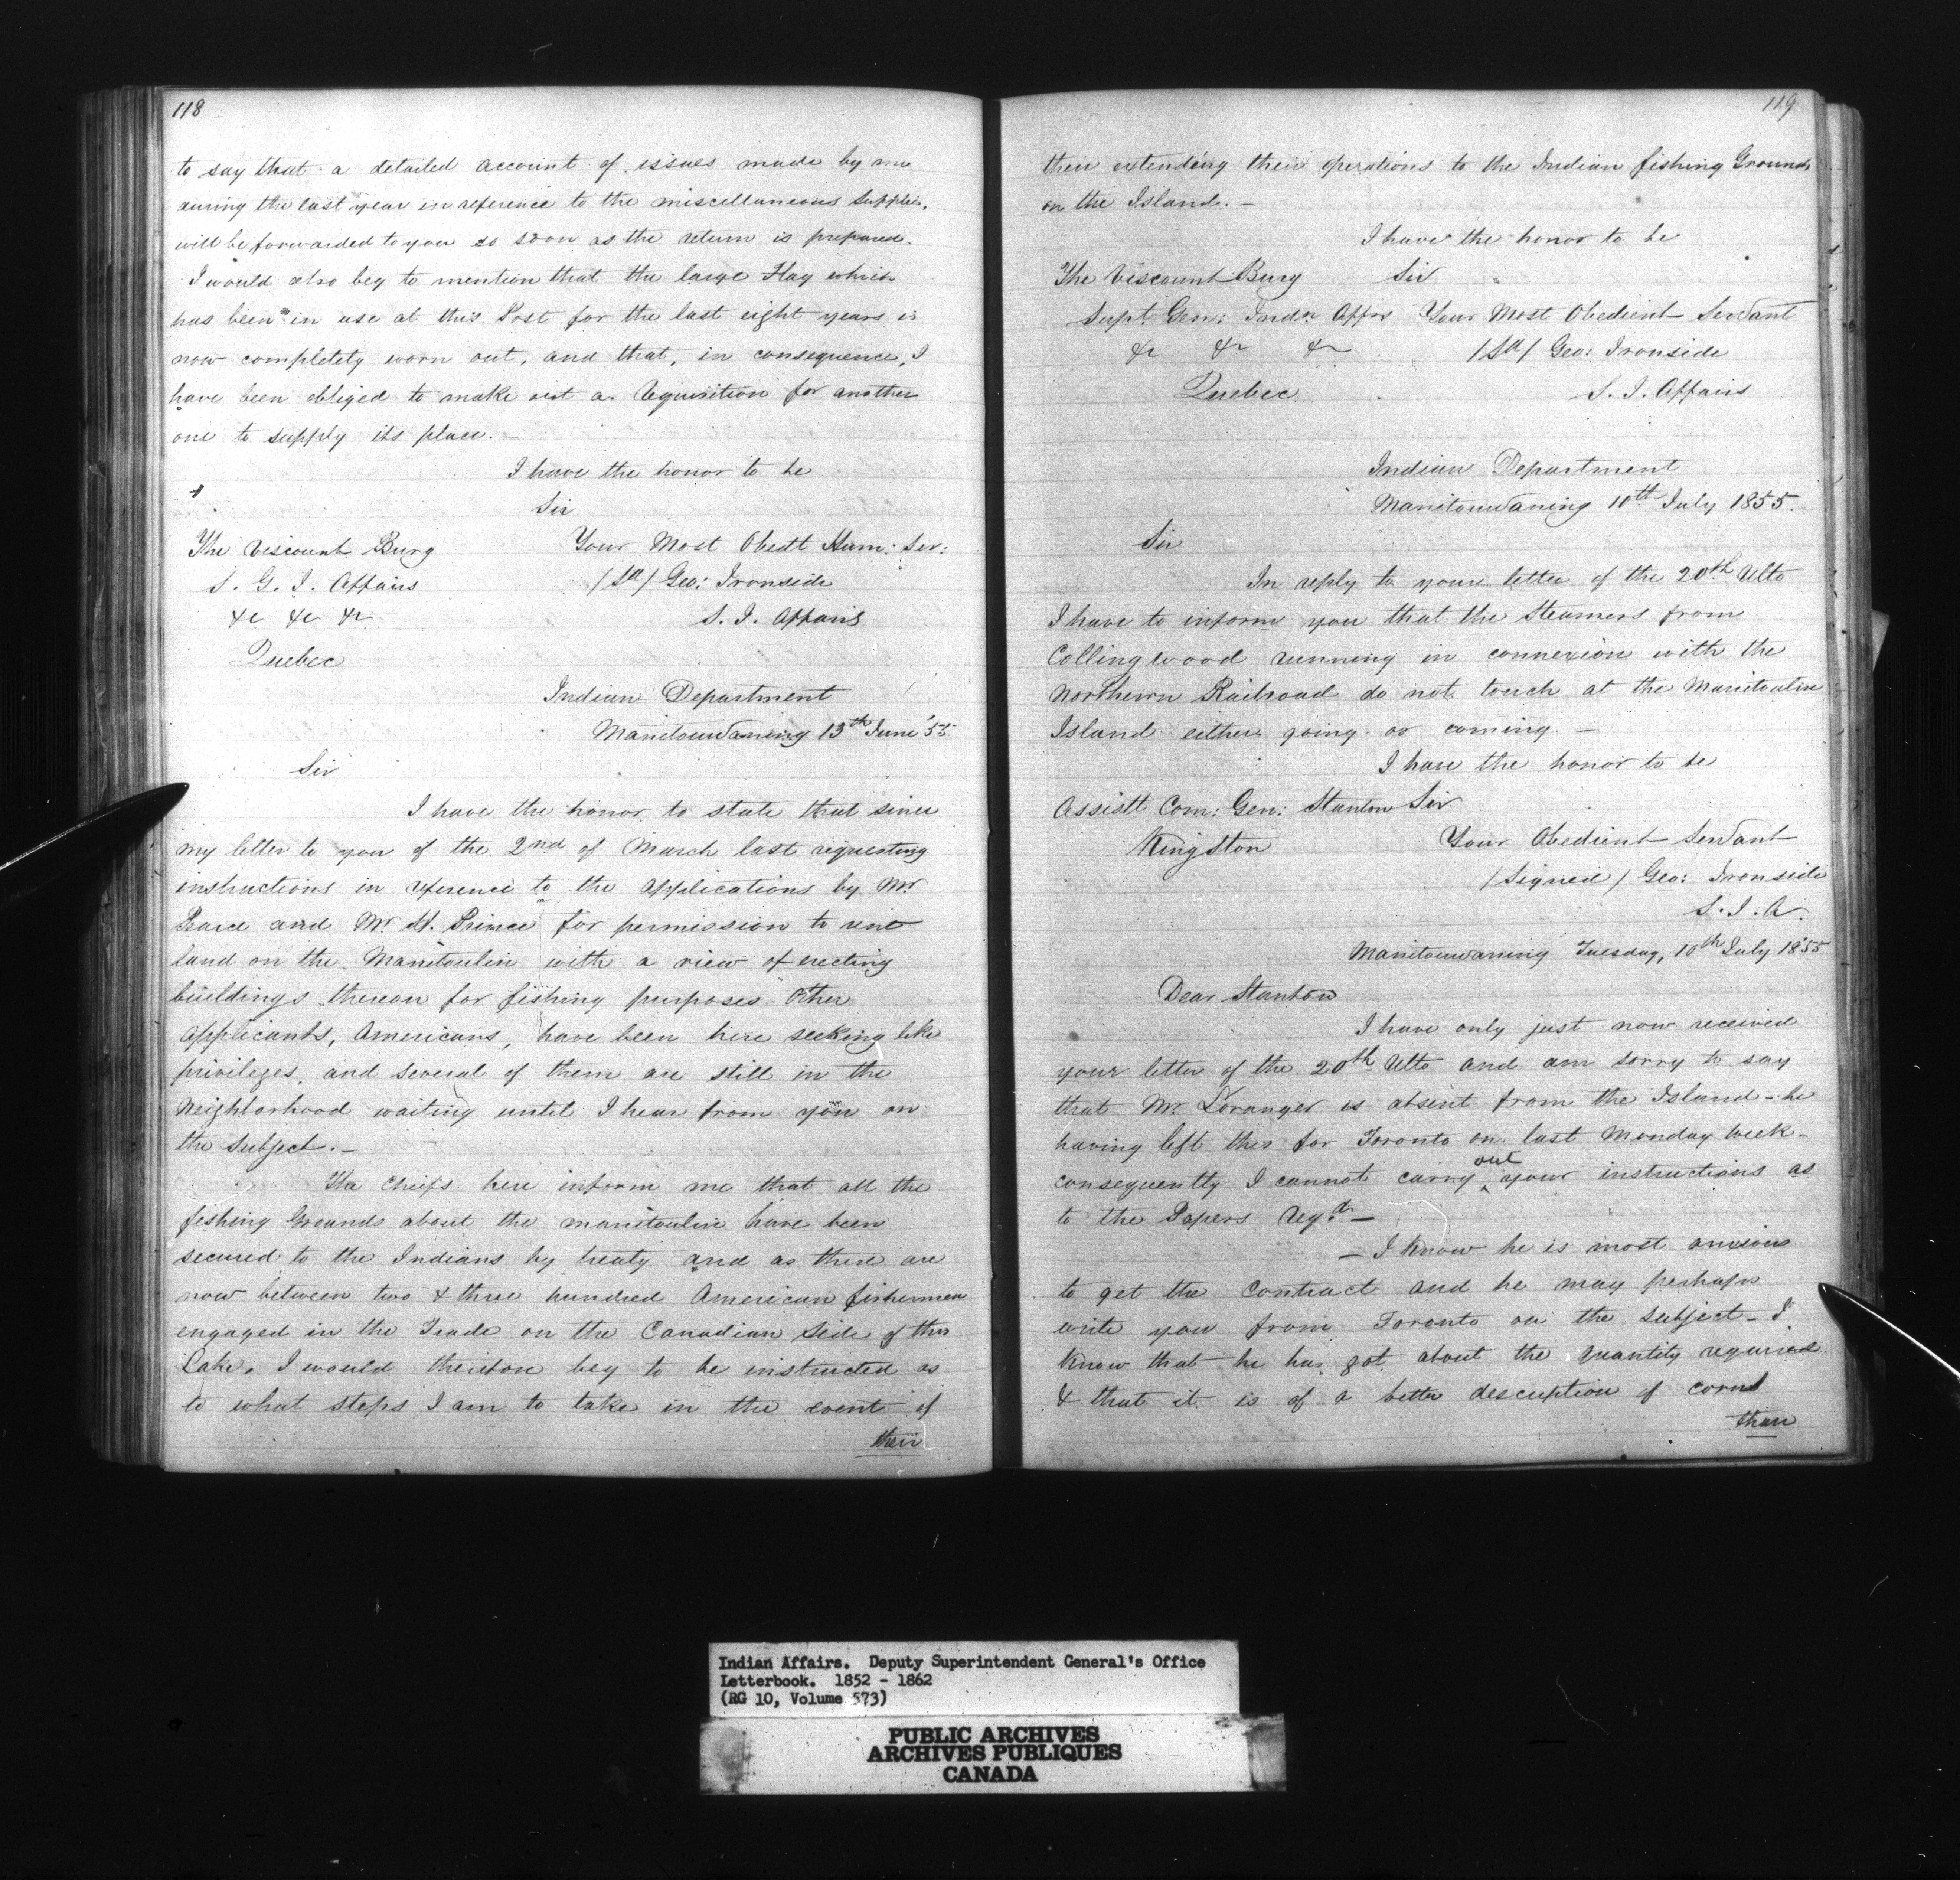 118
to say that a detailed account of issues made by me
during the last year in reference to the miscellaneous supplies,
will be forwarded to you so soon as the return is prepared.
I would also beg to mention that the large Flag which
has been in use at this Post for the last eight years is
now completely worn out, and that, in consequence, I
have been obliged to make out a Requisition for another
one to supply its place. –
I have the honor to be
Sir
The Viscount Bury Your Most Obedt Hum: Ser:
S. G. I. Affairs /Sd/ Geo: Ironside
&c &c &c S. I. Affairs
Quebec
Indian Department
Manitouwaning 13th June '55
Sir
I have the honor to state that since
my letter to you of the 2nd of March last requesting
instructions in reference to the applications by Mr
and Mr St. Prince for permission to rent
land on the Manitoulin with a view of erecting
buildings thereon for fishing purposes Other
applicants, Americans, have been here seeking like
privileges, and several of them are still in the
Neighborhood waiting until I hear from you on
the subject. –
The Chiefs here inform me that all the
fishing Grounds about the Manitoulin have been
secured to the Indians by treaty and as there are
now between two & three hundred American fishermen
engaged in the Trade on the Canadian Side of this
Lake, I would therefore beg to be instructed as
to what steps I am to take in the event of
their
119
their extending their operations to the Indian fishing Grounds
on the Island. –
I have the honor to be
The Viscount Bury Sir
Supt. Gen: Indn Affrs Your Most Obedient Servant
&c &c &c /Sd/ Geo: Ironside
Quebec S. I. Affairs
Indian Department
Manitouwaning 10th July 1855.
Sir
In reply to your letter of the 20th Ulto
I have to inform you that the Steamers from
Collingwood running in connexion with the
Northern Railroad do not touch at the Manitoulin
Island either going or coming. –
I have the honor to be
Assistt Com: Gen: Stanton Sir
Kingston Your Obedient Servant
/Signed/ Geo: Ironside
S. I. A.
Manitouwaning Tuesday, 10th July 1855
Dear Stanton
I have only just now received
your letter of the 20th Ulto and am sorry to say
that Mr Loranger is absent from the Island – he
having left this for Toronto on last Monday Week –
consequently I cannot carry out your instructions as
to the Papers reqd. –
– I know he is most anxious
to get the Contract and he may perhaps
write you from Toronto on the subject – I
know that he has got about the quantity required
& that it is of a better description of corn
than
Indian Affairs. Deputy Superintendent General's Office
Letterbook. 1852 - 1862
(RG 10, Volume 573)
PUBLIC ARCHIVES
ARCHIVES PUBLIQUES
CANADA